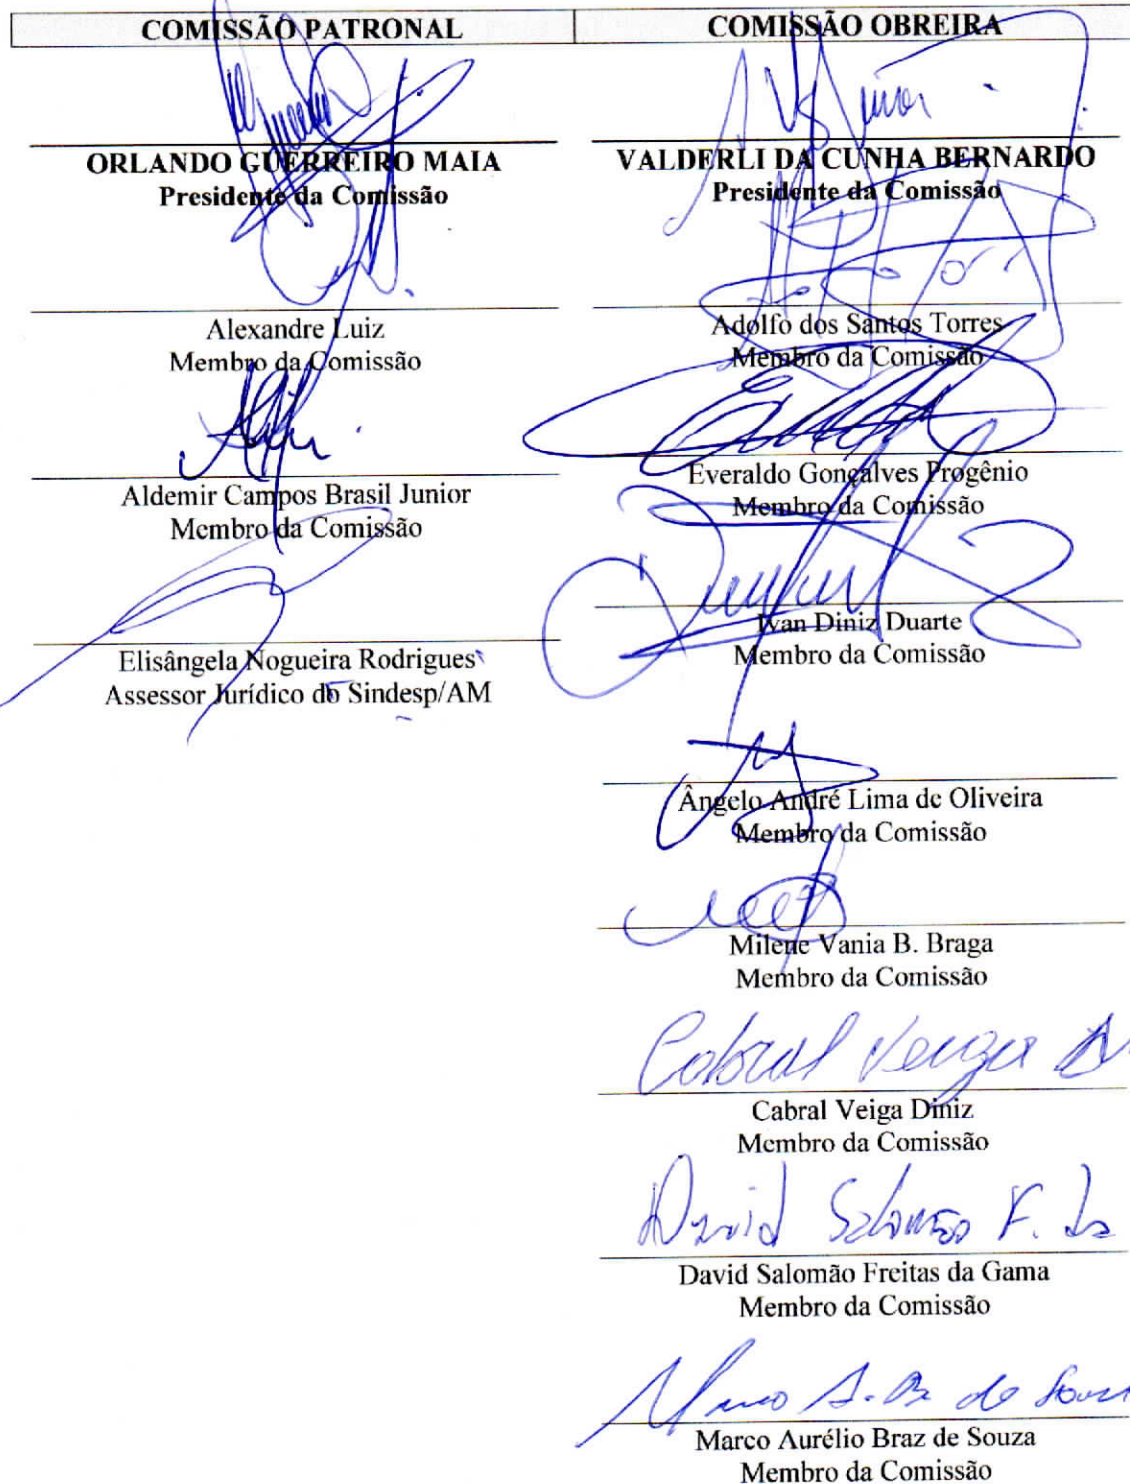 COMISSÃO PATRONAL
ORLANDO GUERREIRO MAIA
Presidente da Comissão
Alexandre Luiz
Membro da Comissão
Aldemir Campos Brasil Junior
Membro da Comissão
Elisângela Nogueira Rodrigues
Assessor Jurídico do Sindesp/AM
COMISSÃO OBREIRA
VALDERLI DA CUNHA BERNARDO
Presidente da Comissão
Adolfo dos Santos Torres
Membro da Comissão
Everaldo Gonçalves Progênio
Membro da Comissão
Ivan Diniz Duarte
Membro da Comissão
Ângelo André Lima de Oliveira
Membro da Comissão
Milene Vania B. Braga
Membro da Comissão
Cabral Veiga
Cabral Veiga Diniz
Membro da Comissão
David Salomão F. da
David Salomão Freitas da Gama
Membro da Comissão
Marco Aurélio Braz de Souza
Membro da Comissão